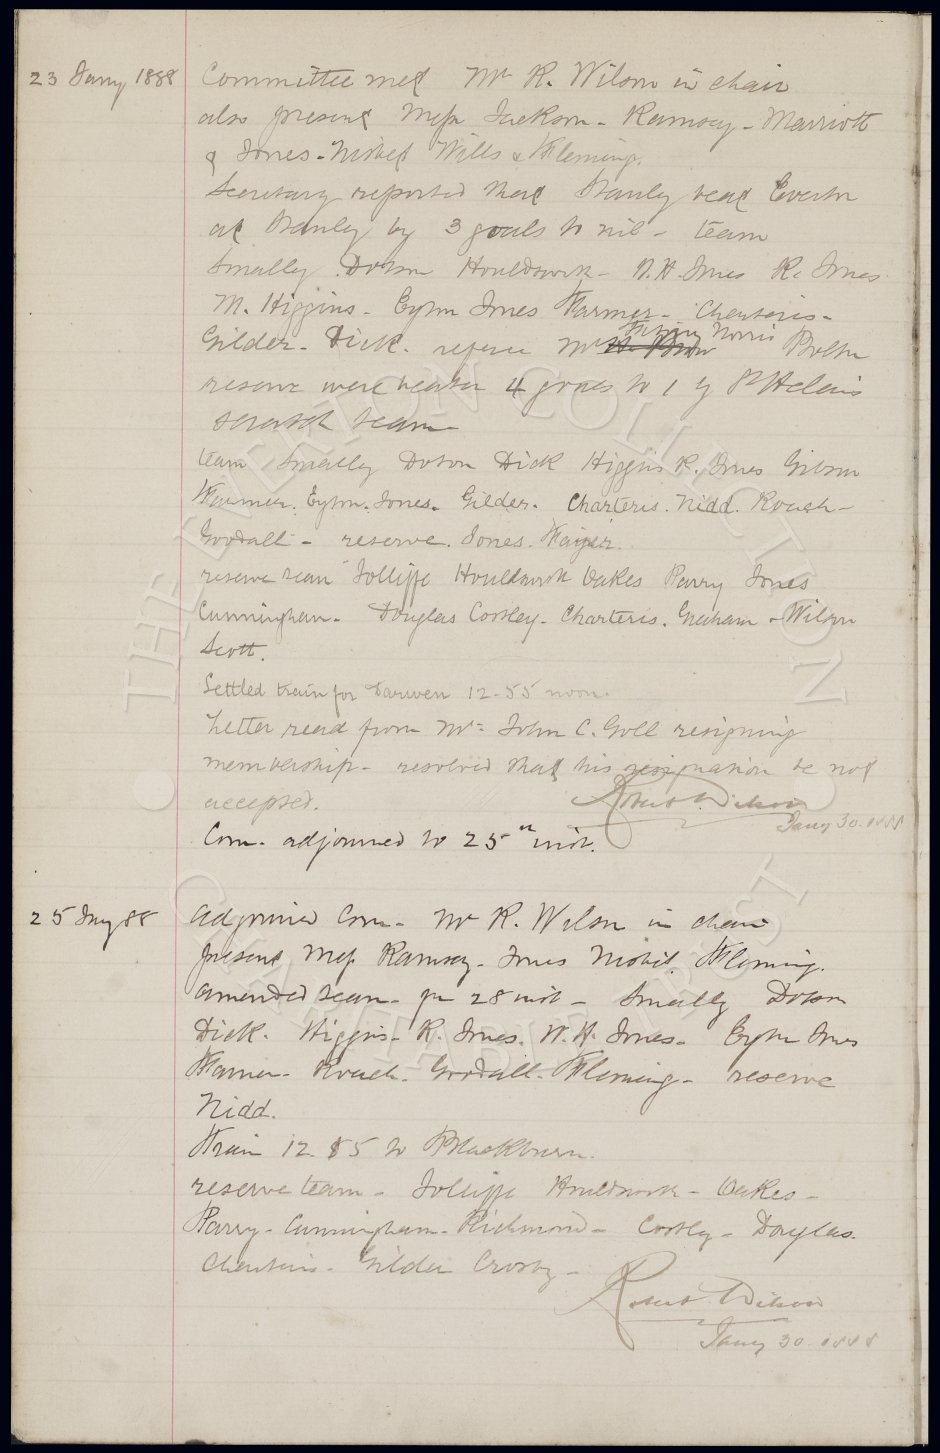 23 Jany 1888 Committee met Mr R. Wilson in chair
also present Mess Jackson - Ramsay - Marriott
& Jones - Nisbet Wills & Fleming.
Secretary reported that Stanley beat Everton
at Stanley by 3 goals to nil - team
Smally Dobson Houldsworth - W. H. Jones R. Jones
M. Higgins - Eyton Jones Farmer - Charteris -
Gilder - Dick. referee Mr Fitzroy Norris Bolton
reserve were beaten 4 goals to 1 by St Helens
scratch team
team Smally Dobson Dick Higgins R. Jones Gibson
Farmer. Eyton-Jones. Gilder. Charteris. Nidd. Roach -
Goodall - reserve. Jones.
reserve team Jolliffe Houldsworth Oakes Parry Jones
Cunningham - Douglas Costley. Charteris. Graham - Wilson
Scott.
Settled train for Darwen 12-55 noon.
Letter read from Mr John C. Goll resigning
membership - resolved that his resignation be not
accepted.
Robert Wilson
Jany 30. 1888
Com. adjourned to 25th inst.
25 Jny 88 Adjourned Com - Mr R. Wilson in chair
present Mess Ramsay - Jones Nisbet. Fleming.
amended team - for 28 inst - Smally Dobson
Dick. Higgins - R. Jones. W. H. Jones - Eyton Jones
Farmer - Roach. Goodall. Fleming - reserve
Nidd.
Train 12 55 to Blackburn.
reserve team - Jolliffe Houldsworth - Oakes -
Parry - Cunningham - Richmond - Costley - Douglas.
Charteris - Gilder Crosby -
Robert Wilson
Jany 30. 1888
THE EVERTON COLLECTION
CHARITABLE TRUST